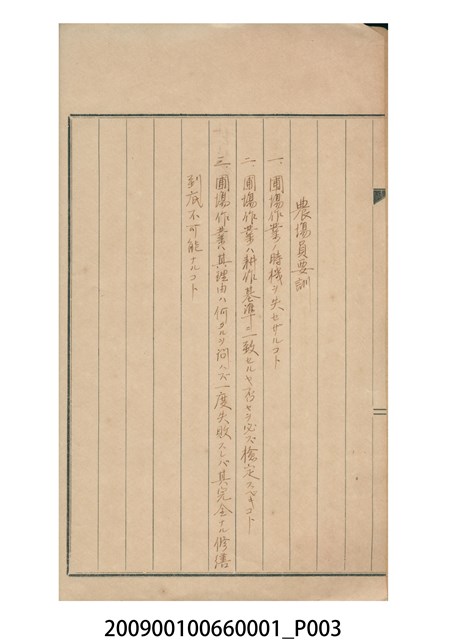 農場員要訓
一、圃場作業ノ時機ヲ失セザルコト
二、圃場作業ハ耕作基準ニ一致セルヤ否ヤヲ必ズ検定スベキコト
三、圃場作業ハ其理由ハ何タルヲ問ハズ一度失敗スレバ其完全ナル修善
到底不可能ナルコト
200900100660001_P003